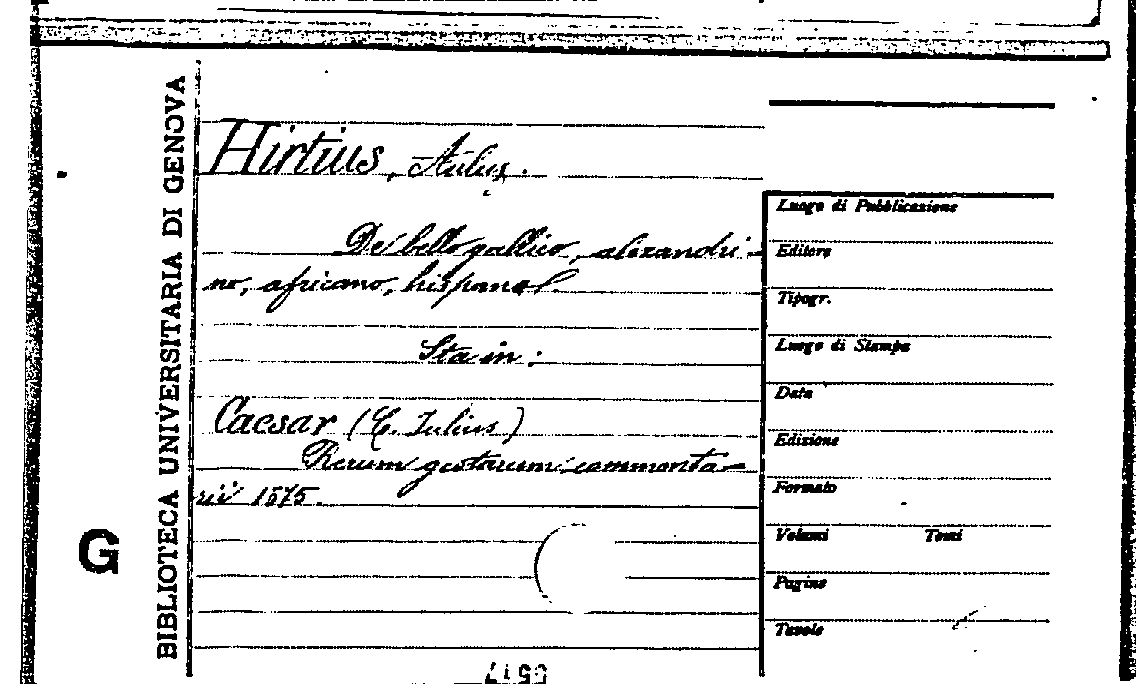 BIBLIOTECA UNIVERSITARIA DI GENOVA
G
Hirtius, Aulus.
De bello gallico, alexandri-
no, africano, hispanol.
Sta in:
Caesar (C. Iulius)
Rerum gestarum commenta-
rii 1575.
Luogo di Pubblicazione
Editore
Tipogr.
Luogo di Stampa
Data
Edizione
Formato
Volumi Tomi
Pagine
Tavole